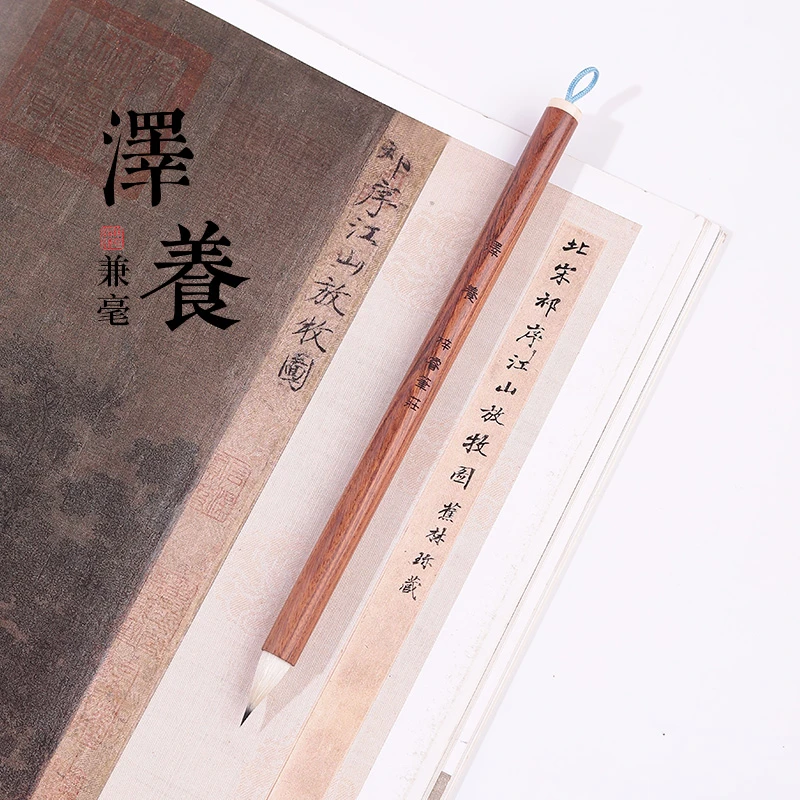 澤養
兼毫
祁序江山放牧圖
澤養 梓睿筆莊
北宋祁序江山放牧圖 蕉林珍藏